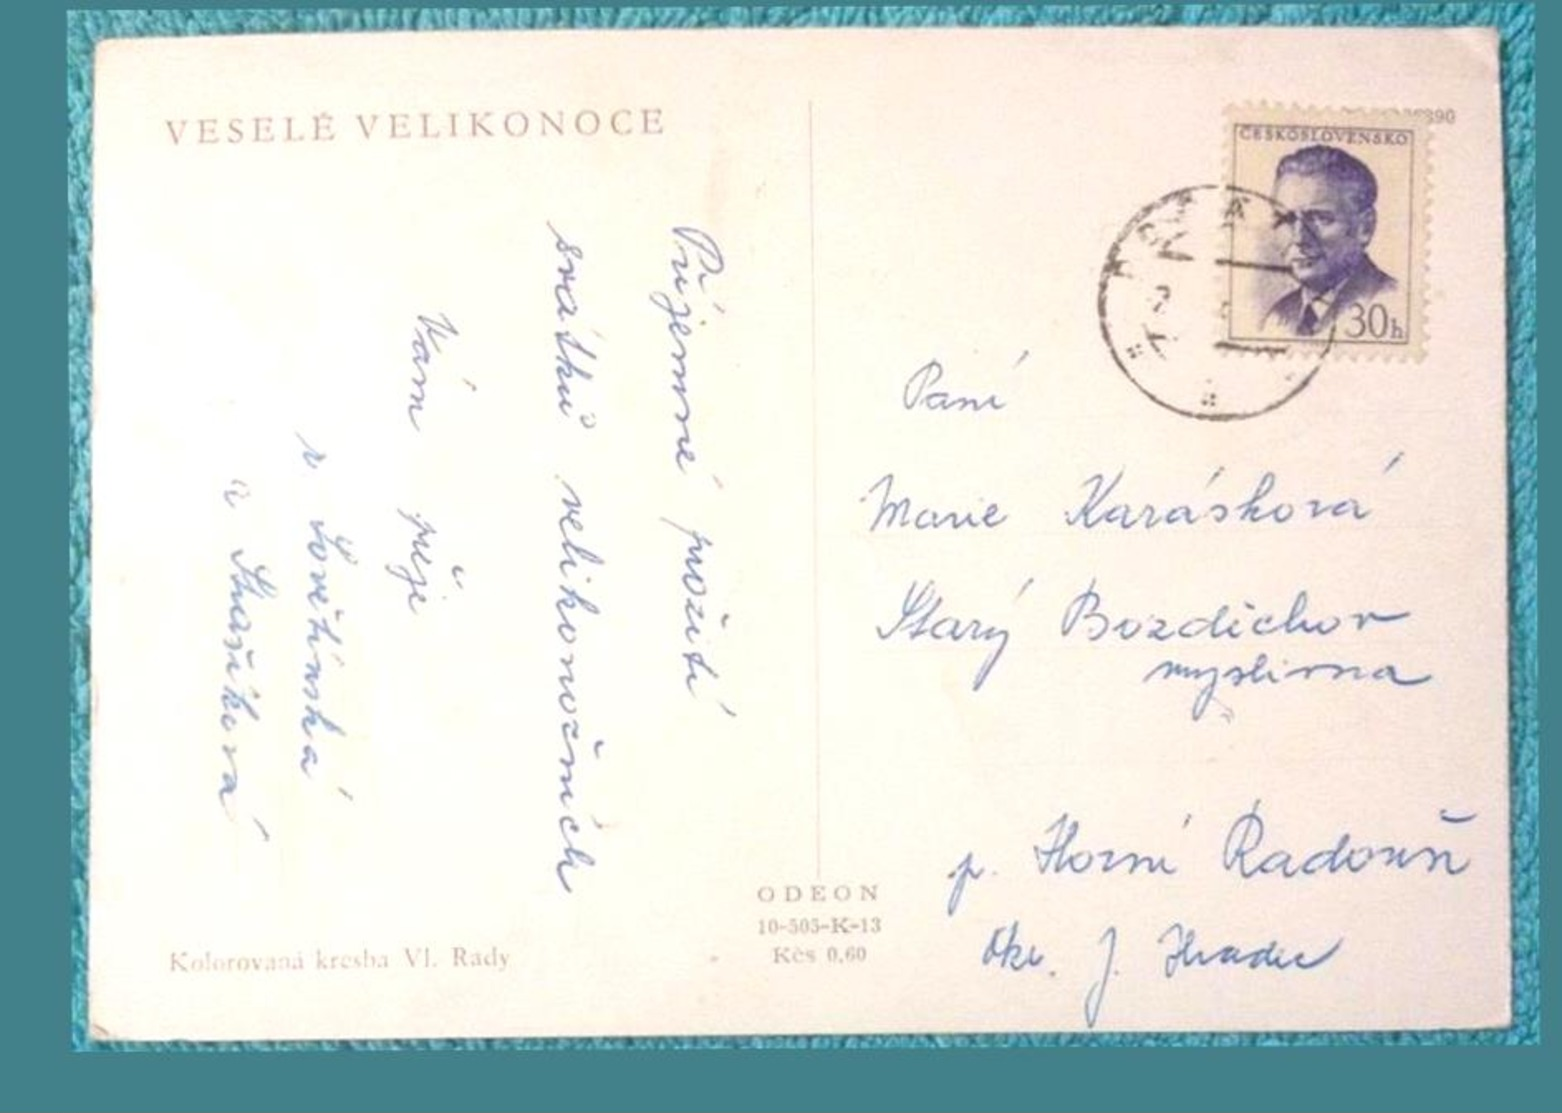 VESELÉ VELIKONOCE
Příjemné prožití
svátků velikonočních
Vám přeje
Kolorovaná kresba Vl. Rady
ODEON
10-505-K-13
Kčs 0,60
ČESKOSLOVENSKO
30h
Paní
Marie Karásková
Starý Bozděchov
myslivna
p. Horní Radouň
okr. J. Hradec